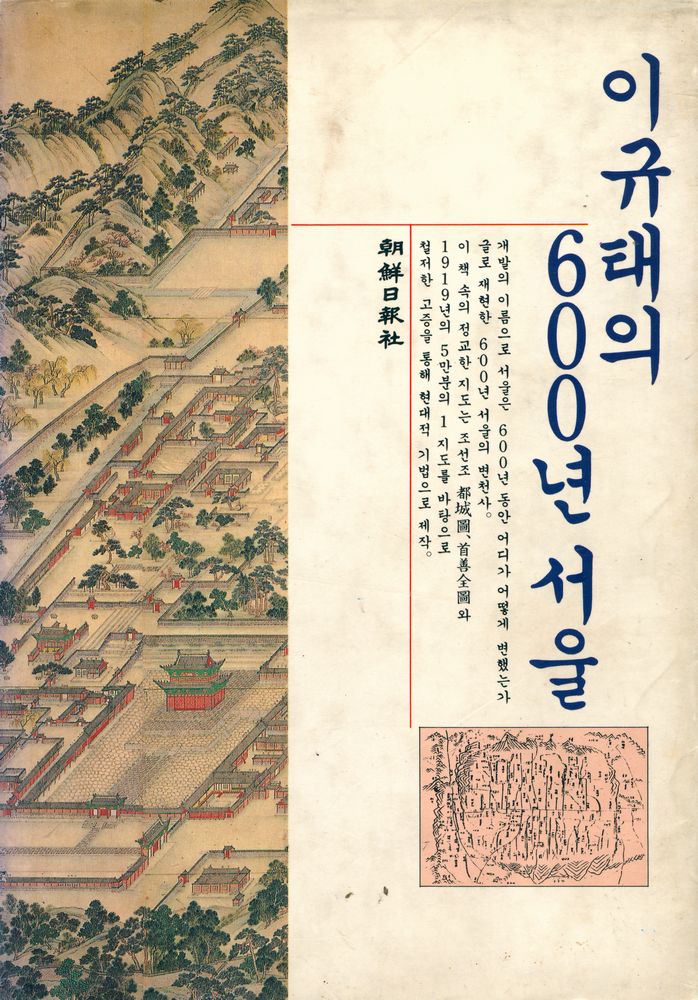 이규태의
600년 서울
개발의 이름으로 서울은 600년 동안 어디가 어떻게 변했는가
글로 재현한 600년 서울의 변천사。
이 책 속의 정교한 지도는 조선조 都城圖、首善全圖와
1919년의 5만분의 1 지도를 바탕으로
철저한 고증을 통해 현대적 기법으로 제작。
朝鮮日報社